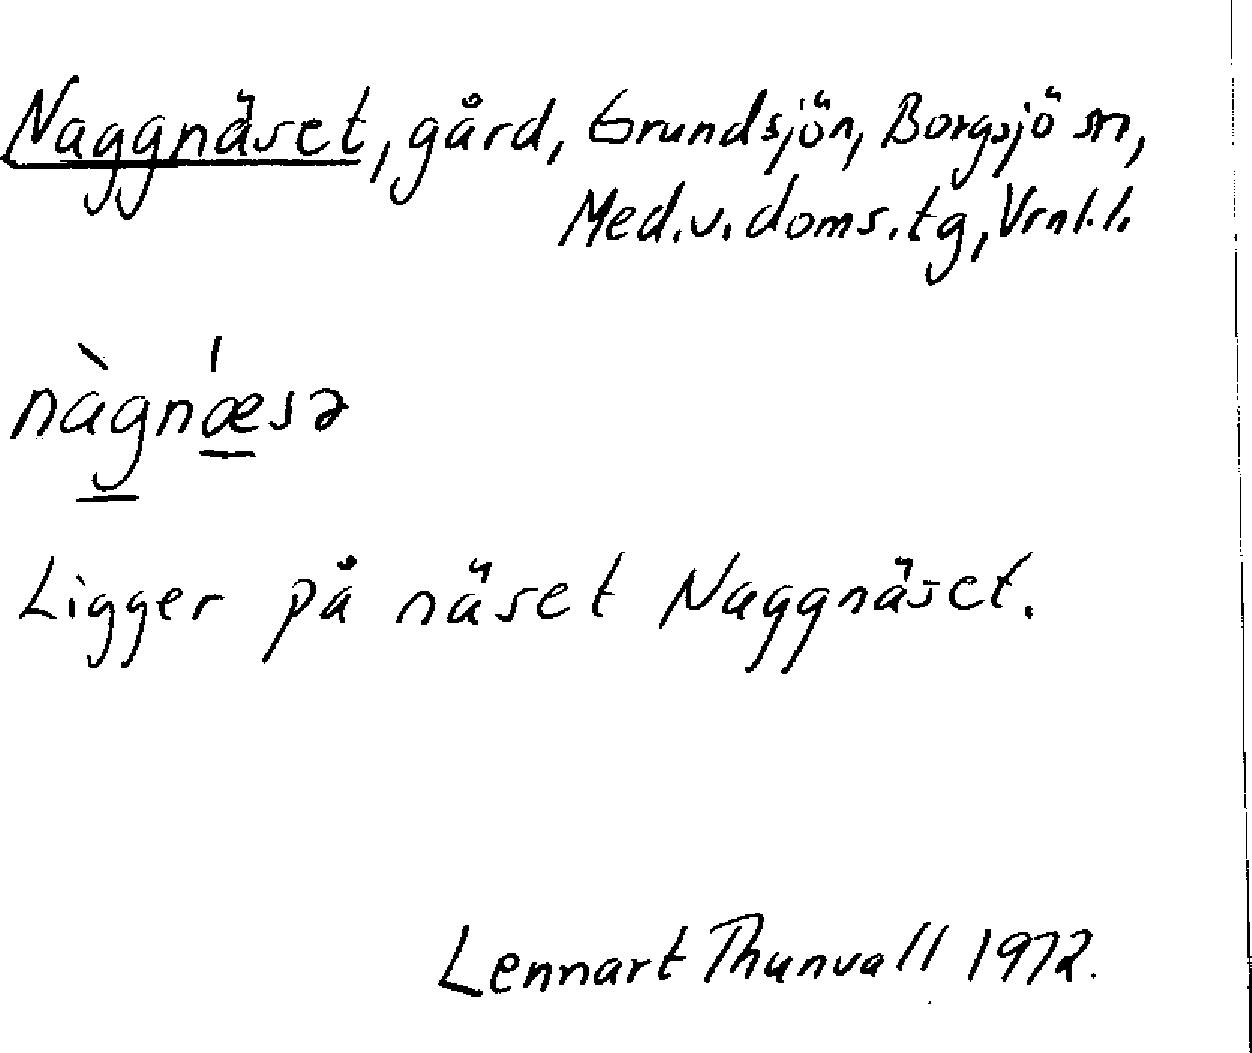 Naggnäset, gård, Grundsjön, Borgsjö sn,
Med.v.doms.tg, Vrnl.l.
nàgnǽsə
Ligger på näset Naggnäset.
Lennart Thunvall 1972.